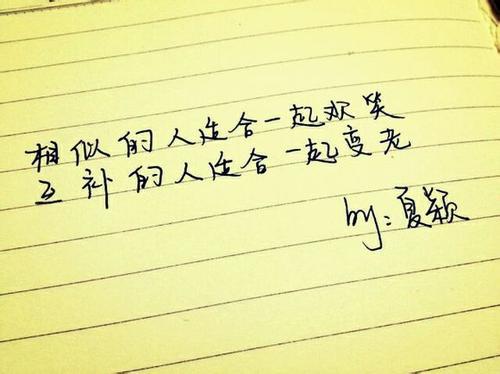 相似的人适合一起欢笑
互补的人适合一起变老
by:夏颖